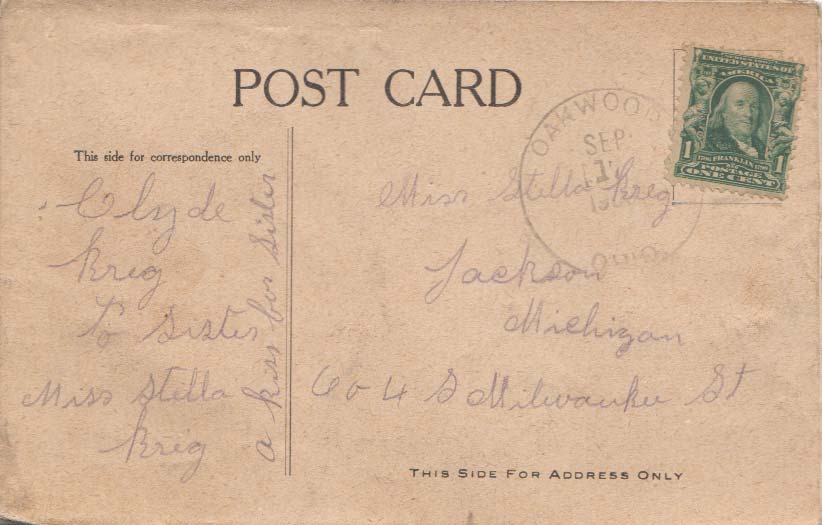 POST CARD
This side for correspondence only
Clyde
Kreg
To Sister
Miss Stella
Kreg
a kiss for Sister
OAKWOOD
SEP
OHIO
UNITED STATES OF
AMERICA
1 1706 FRANKLIN 1790 1
POSTAGE
ONE CENT
Miss Stella Kreg
Jackson
Michigan
604 S Milwaukee St
THIS SIDE FOR ADDRESS ONLY